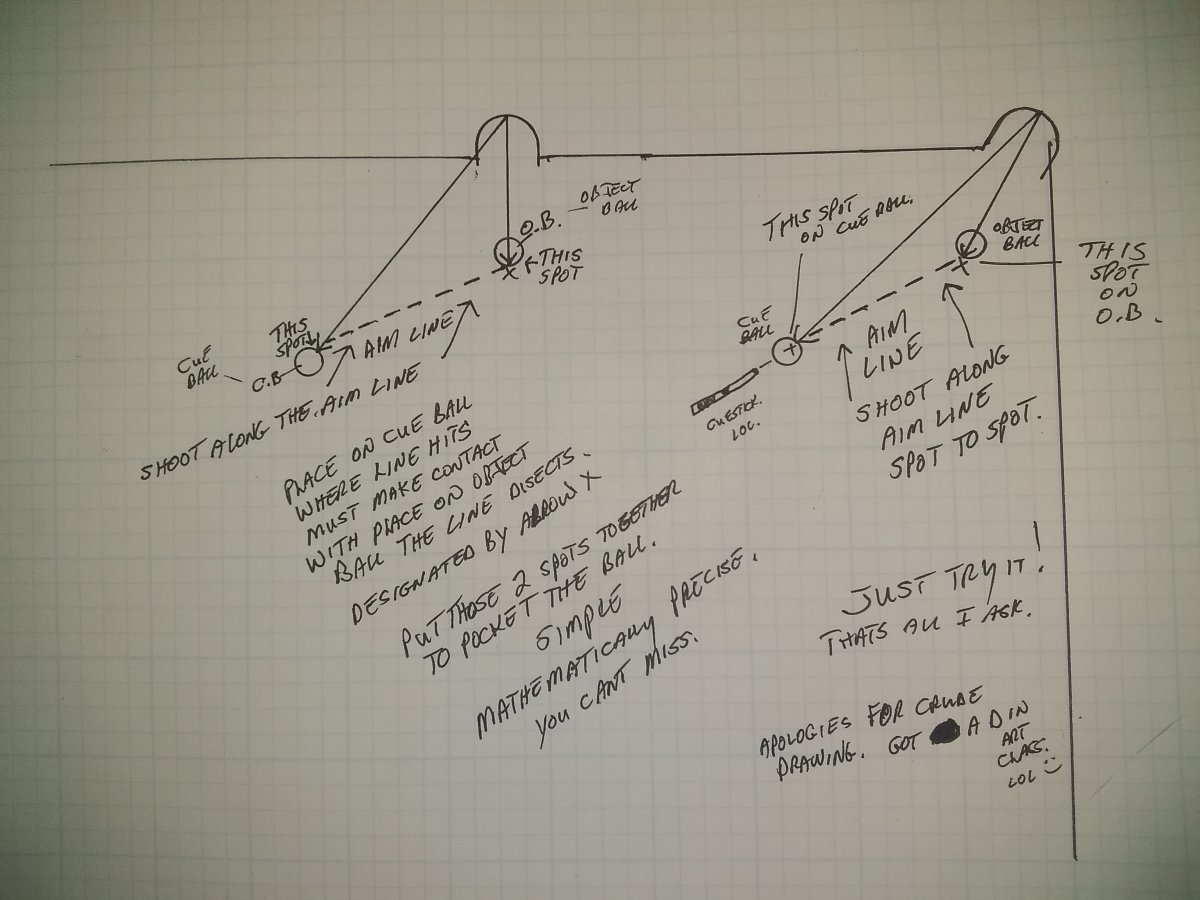 O.B. — OBJECT
BALL
← THIS
SPOT
X
THIS
SPOT
CUE
BALL
C.B
AIM LINE
SHOOT ALONG THE AIM LINE
PLACE ON CUE BALL
WHERE LINE HITS
MUST MAKE CONTACT
WITH PLACE ON OBJECT
BALL THE LINE DISECTS.
DESIGNATED BY ARROW X
PUT THOSE 2 SPOTS TOGETHER
TO POCKET THE BALL.
SIMPLE
MATHEMATICALLY PRECISE.
YOU CANT MISS.
THIS SPOT
ON CUE BALL.
OBJECT
BALL
X
THIS
SPOT
ON
O.B.
CUE
BALL
+
CUESTICK.
LOL.
AIM
LINE
SHOOT ALONG
AIM LINE
SPOT TO SPOT.
JUST TRY IT!
THATS ALL I ASK.
APOLOGIES FOR CRUDE
DRAWING. GOT A D IN
ART
CLASS.
LOL